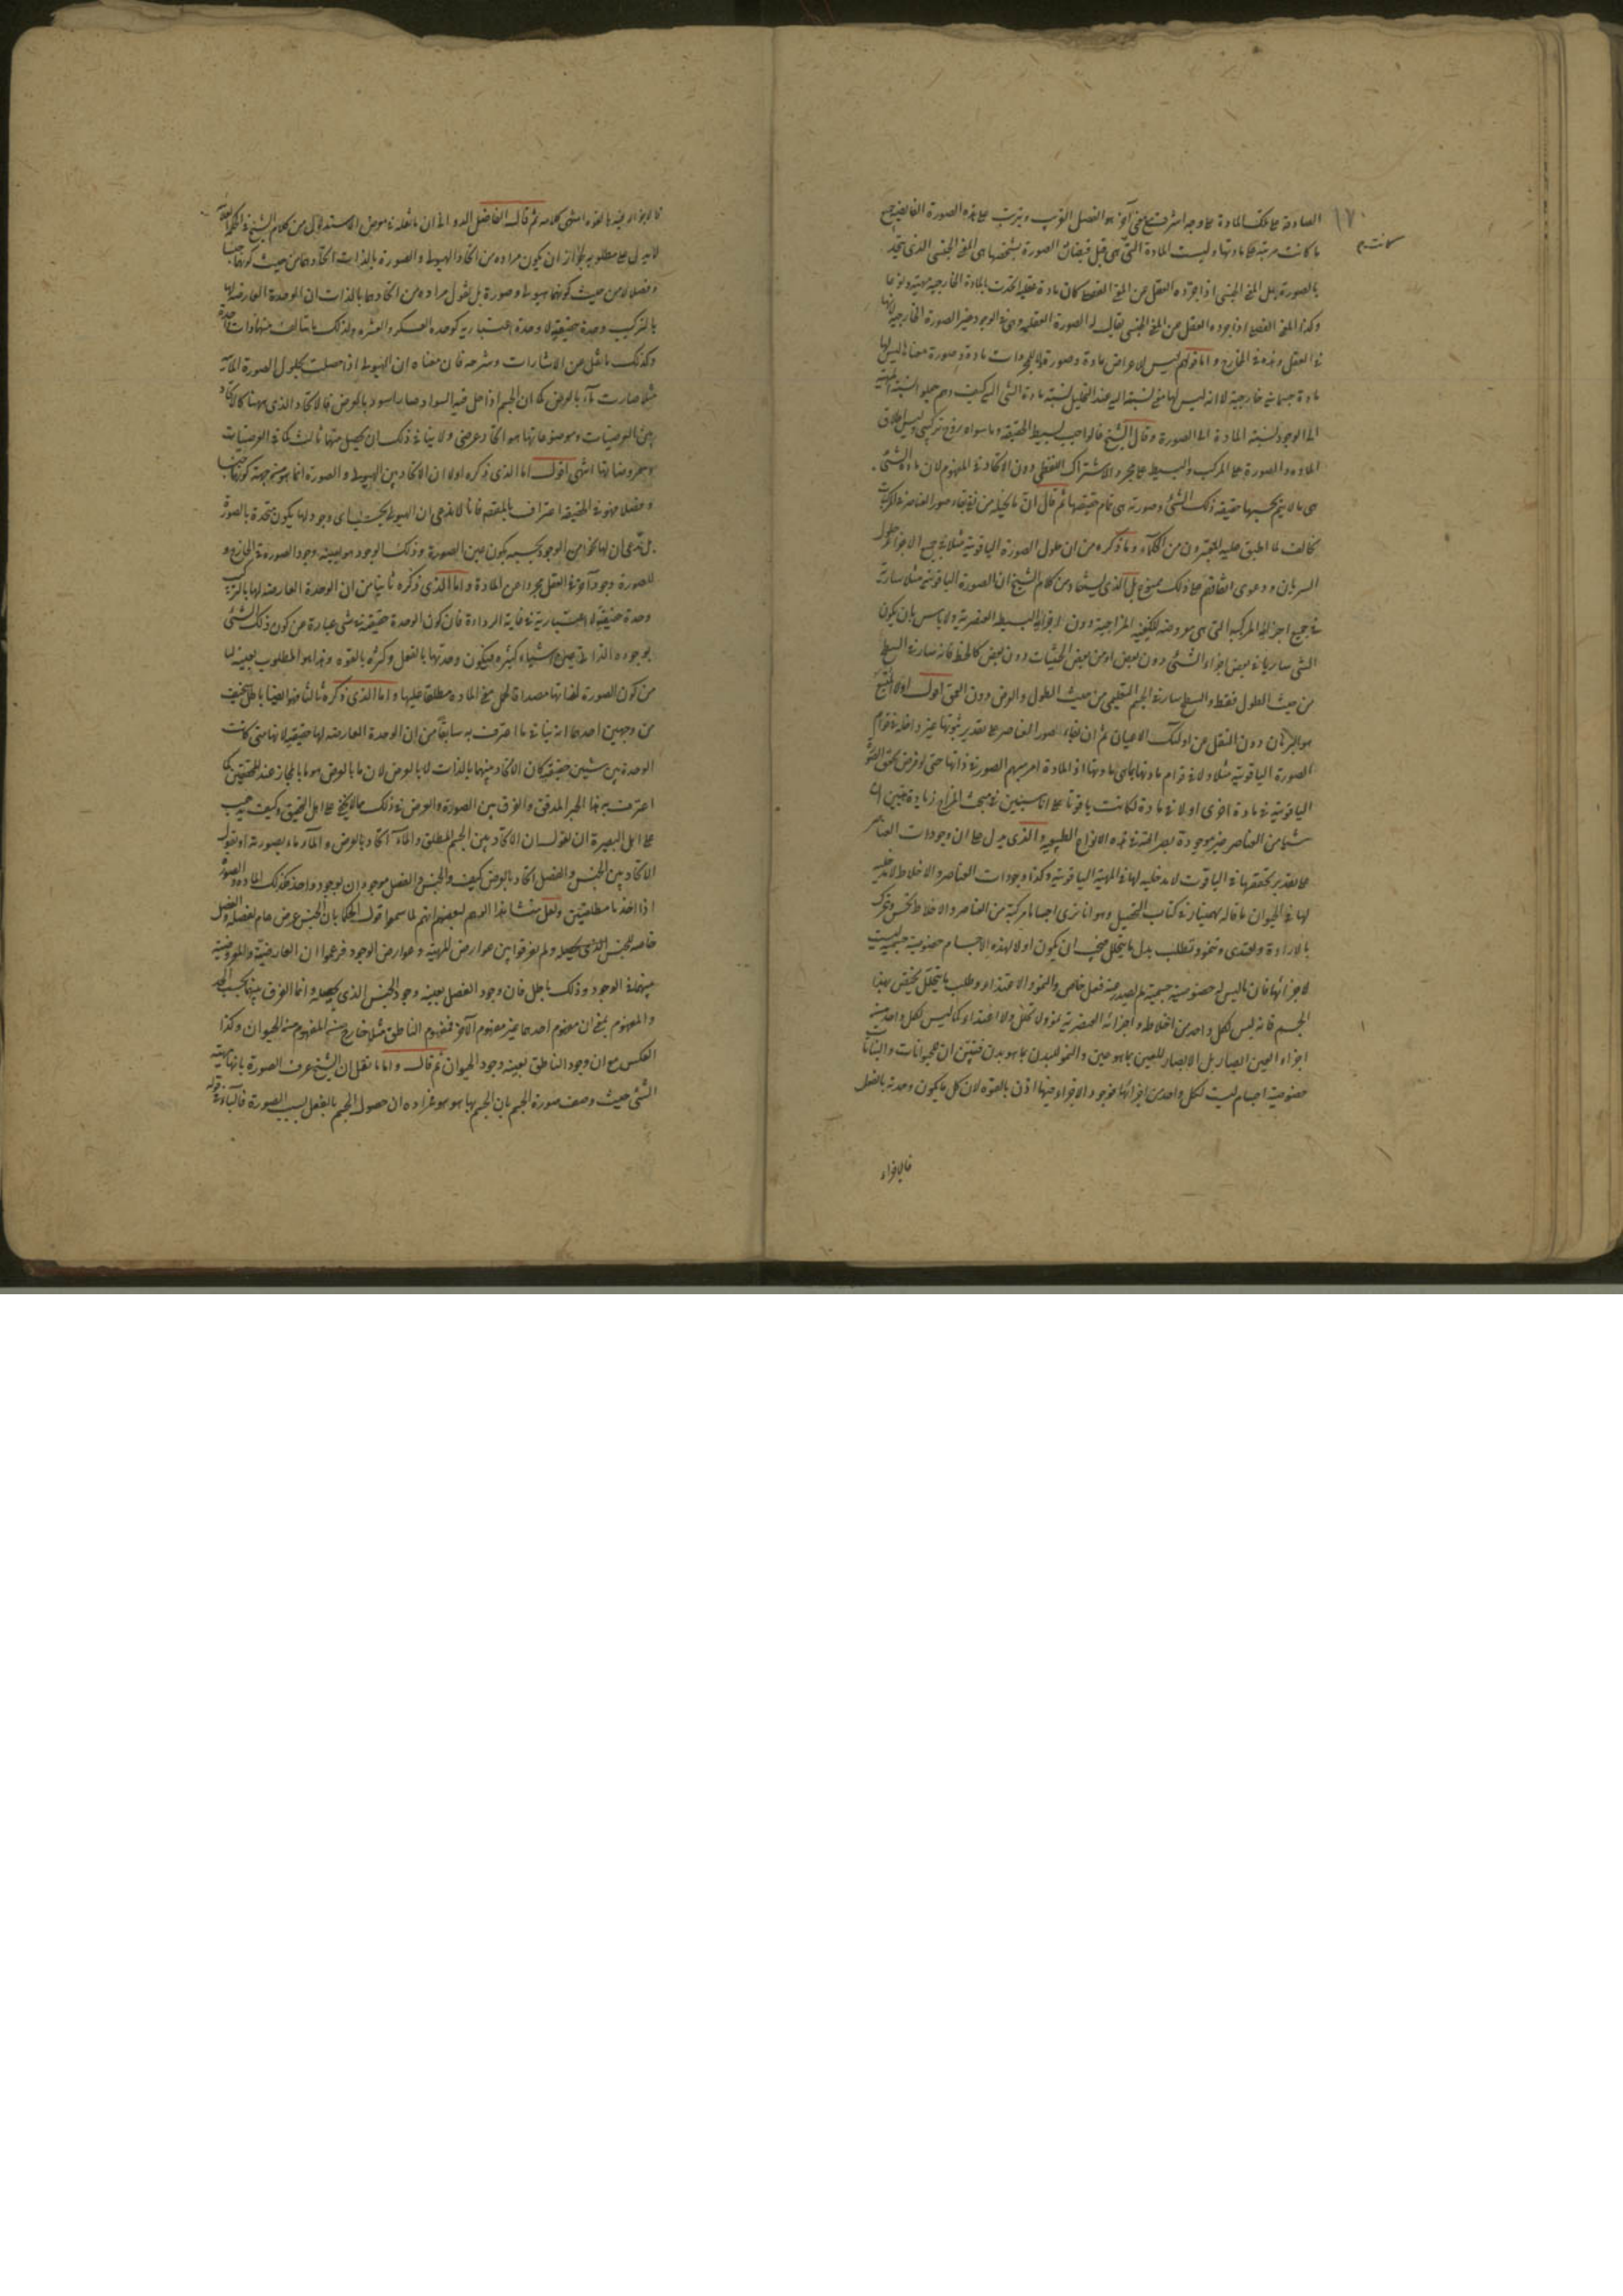 ١٧٠
الصادقة على تلك المادة على وجه اشرف مع معنى آخر هو الفصل القريب ويترتب على هذه الصورة الفايضة جميع
ما كانت مرتبة على مادتها وليست المادة التي هي قبل فيضان الصورة بشخصها هي المعنى الجنسي الذي يتحد
بالصورة بل المعنى الجنسي اذا جرده العقل عن المعنى الفصلي كان مادة عقلية اتحدت بالمادة الخارجية مهية
وكذا المعنى الفصلي اذا جرده العقل عن المعنى الجنسي يقال له الصورة العقلية وهي في الوجود غير الصورة الخارجية لانها
في العقل وهذه في الخارج واما قولهم ليس للاعراض مادة وصورة ولا للمجردات مادة وصورة معناه ليس لها
مادة جسمانية خارجية لا انه ليس لها معنى نسبته اليه عند التحليل نسبة مادة الشي اليه كيف وهم جعلوا نسبة المهية
الى الوجود كنسبة المادة الى الصورة وقال الشيخ فالواجب بسيط الحقيقة وما سواه زوج تركيبي وليس اطلاق
المادة والصورة على المركب والبسيط على مجرد الاشتراك اللفظي دون الاتحاد في المفهوم لان مادة الشئ
هي ما لا يتم بحسبها حقيقة ذلك الشئ وصورته هي تمام حقيقتها ثم قال ان ما تخيله من نفي بقاء صور العناصر في المركبات
مخالف لما اطبق عليه المعتبرون من الحكماء وما ذكره من ان حلول الصورة الياقوتية مثلا في جميع الاجزاء حلول
السريان ودعوى اتفاقهم على ذلك ممنوع بل الذي يستفاد من كلام الشيخ ان الصورة الياقوتية مثلا سارية
في جميع اجزاء المركب التي هي معروضة للكيفية المزاجية دون اجزائه البسيطة العنصرية ولا باس بان يكون
الشي ساريا في بعض اجزاء الشئ دون بعض او من بعض الحيثيات دون بعض كالخط فانه سار في السطح
من حيث الطول فقط والسطح سار في الجسم التعليمي من حيث الطول والعرض دون العمق اقول اولا المتبع
هو البرهان دون النقل عن اولئك الاعيان ثم ان بقاء صور العناصر على تقدير ثبوتها غير داخلة في قوام
الصورة الياقوتية مثلا ولا في قوام مادتها بما هي مادتها اذ المادة امر مبهم الصورة في ذاتها حتى لو فرض تحقق الصورة
الياقوتية في مادة اخرى او لا في مادة لكانت ياقوتا على انا سنبين في مبحث المزاج زيادة تبيين ان
شيئا من العناصر غير موجودة بصرافتها في هذه الانواع الطبيعية والذي يدل على ان وجودات العناصر
على تقدير تحققها في الياقوت لا مدخلية لها في المهية الياقوتية وكذا وجودات العناصر والاخلاط لا مدخلية
لها في الحيوان ما قاله بهمنيار في كتاب التحصيل وهو انا نرى اجساما مركبة من العناصر والاخلاط تحس وتحرك
بالارادة وتغتذي وتنمو وتطلب بدل ما يتحلل فيجب ان يكون اولا لهذه الاجسام خصوصية جسمية ليست
لاجزائها فان ما ليس له خصوصية جسمية لم يصدر عنه فعل خاص والنمو والاغتذاء وطلب ما يتحلل يختص بهذا
الجسم فانه ليس لكل واحد من اخلاطه واجزائه العنصرية نمو ولا تحلل ولا اغتذاء كما ليس لكل واحد من
اجزاء العين ابصار بل الابصار للعين بما هو عين والنمو للبدن بما هو بدن فتبين ان للحيوانات والنباتات
خصوصية اجسام ليست لكل واحد من اجزائها فوجود الاجزاء فيها اذن بالقوة لان كل ما يكون وحدته بالفعل
فالاجزاء
فالاجزاء فيه بالقوة انتهى كلامه ثم قال الفاضل الدواني ان ما نقله في معرض الاستدلال من كلام الشيخ في الحكمة
لا يدل على مطلوبه لجواز ان يكون مراده من اتحاد الهيولى والصورة بالذات اتحادهما من حيث كونهما جنسا
وفصلا لا من حيث كونهما هيولى وصورة بل نقول مراده من اتحادهما بالذات ان الوحدة العارضة لهما
بالتركيب وحدة حقيقية لا وحدة اعتبارية كوحدة العسكر والعشرة ولذلك ما يتالف منهما ذات احدية
وكذلك ما نقل من الاشارات وشرحه فان معناه ان الهيولى اذا حصلت بحلول الصورة المائية
مثلا صارت ماء بالعرض كما ان الجسم اذا حل فيه السواد صار اسود بالعرض فالاتحاد الذي ههنا كالاتحاد
بين العرضيات وموضوعاتها هو اتحاد عرضي ولا ينافي ذلك ان يحصل منهما ثالث كما في العرضيات
ومعروضاتها انتهى اقول اما الذي ذكره اولا ان الاتحاد بين الهيولى والصورة انما هو من جهة كونهما جنسا
وفصلا فهو في الحقيقة اعتراف بالمقصود فانا لا ندعي ان الهيولى بحسب اي وجود لها يكون متحدة بالصورة
بل ندعي ان لها نحوا من الوجود بحسبه يكون عين الصورة وذلك الوجود هو بعينه وجود الصورة في الخارج و
للصورة وجود آخر في العقل مجردا عن المادة واما الذي ذكره ثانيا من ان الوحدة العارضة لها بالتركيب
وحدة حقيقية لا اعتبارية ففي غاية الرداءة فان كون الوحدة حقيقة في شي عبارة عن كون ذلك الشئ
بوجوده الذاتي عين اشياء كثيرة فيكون وحدتها بالفعل وكثرته بالقوة وهذا هو المطلوب بعينه لما
من كون الصورة بذاتها مصداقا لحمل معنى المادة مطلقا عليها واما الذي ذكره ثالثا فهو ايضا باطل سخيف
من وجهين احدهما انه ينافي ما اعترف به سابقا من ان الوحدة العارضة لها حقيقية لانها متى كانت
الوحدة بين شيئين حقيقية كان الاتحاد بينهما بالذات لا بالعرض لان ما بالعرض هو ما بالمجاز عند المحققين كما
اعترف به هذا الحبر المدقق والفرق بين الصورة والعرض في ذلك مما لا يخفى على اهل التحقيق وكيف يجب
على اهل البصيرة ان يقول ان الاتحاد بين الجسم المطلق والماء اتحاد بالعرض والماء ماء بصورته او يقول
الاتحاد بين الجنس والفصل اتحاد بالعرض كيف والجنس والفصل موجودان بوجود واحد فكذلك المادة والصورة
اذا اخذتا مطلقتين ولعل منشا هذا الوهم لبعضهم انهم لما سمعوا قول الحكماء بان الجنس عرض عام لفصله والفصل
خاصة للجنس الذي يحصله ولم يفرقوا بين عوارض المهية وعوارض الوجود فزعموا ان العارضية والمعروضية
بينهما في الوجود وذلك باطل فان وجود الفصل بعينه وجود الجنس الذي يحصله وانما الفرق بينهما بحسب الحد
والمفهوم بمعنى ان مفهوم احدهما غير مفهوم الآخر فمفهوم الناطق مثلا خارج عنه المفهوم من الحيوان وكذا
العكس مع ان وجود الناطق بعينه وجود الحيوان ثم قال واما ما نقل ان الشيخ عرف الصورة بانها مهية
الشئ حيث وصف صورة الجسم بان الجسم بها هو هو فمراده ان حصول الجسم بالفعل بسبب الصورة فالباء في قوله